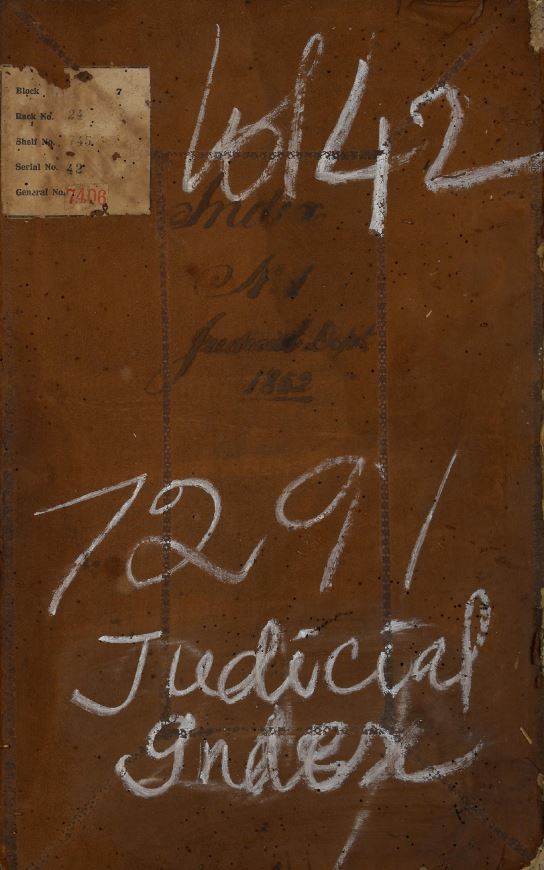 Block 7
Rack No. 24
Shelf No. 745
Serial No. 42
General No. 7406
Vol 42
Index
No. 1
Judicial Dept
1862
7291
Judicial
Index